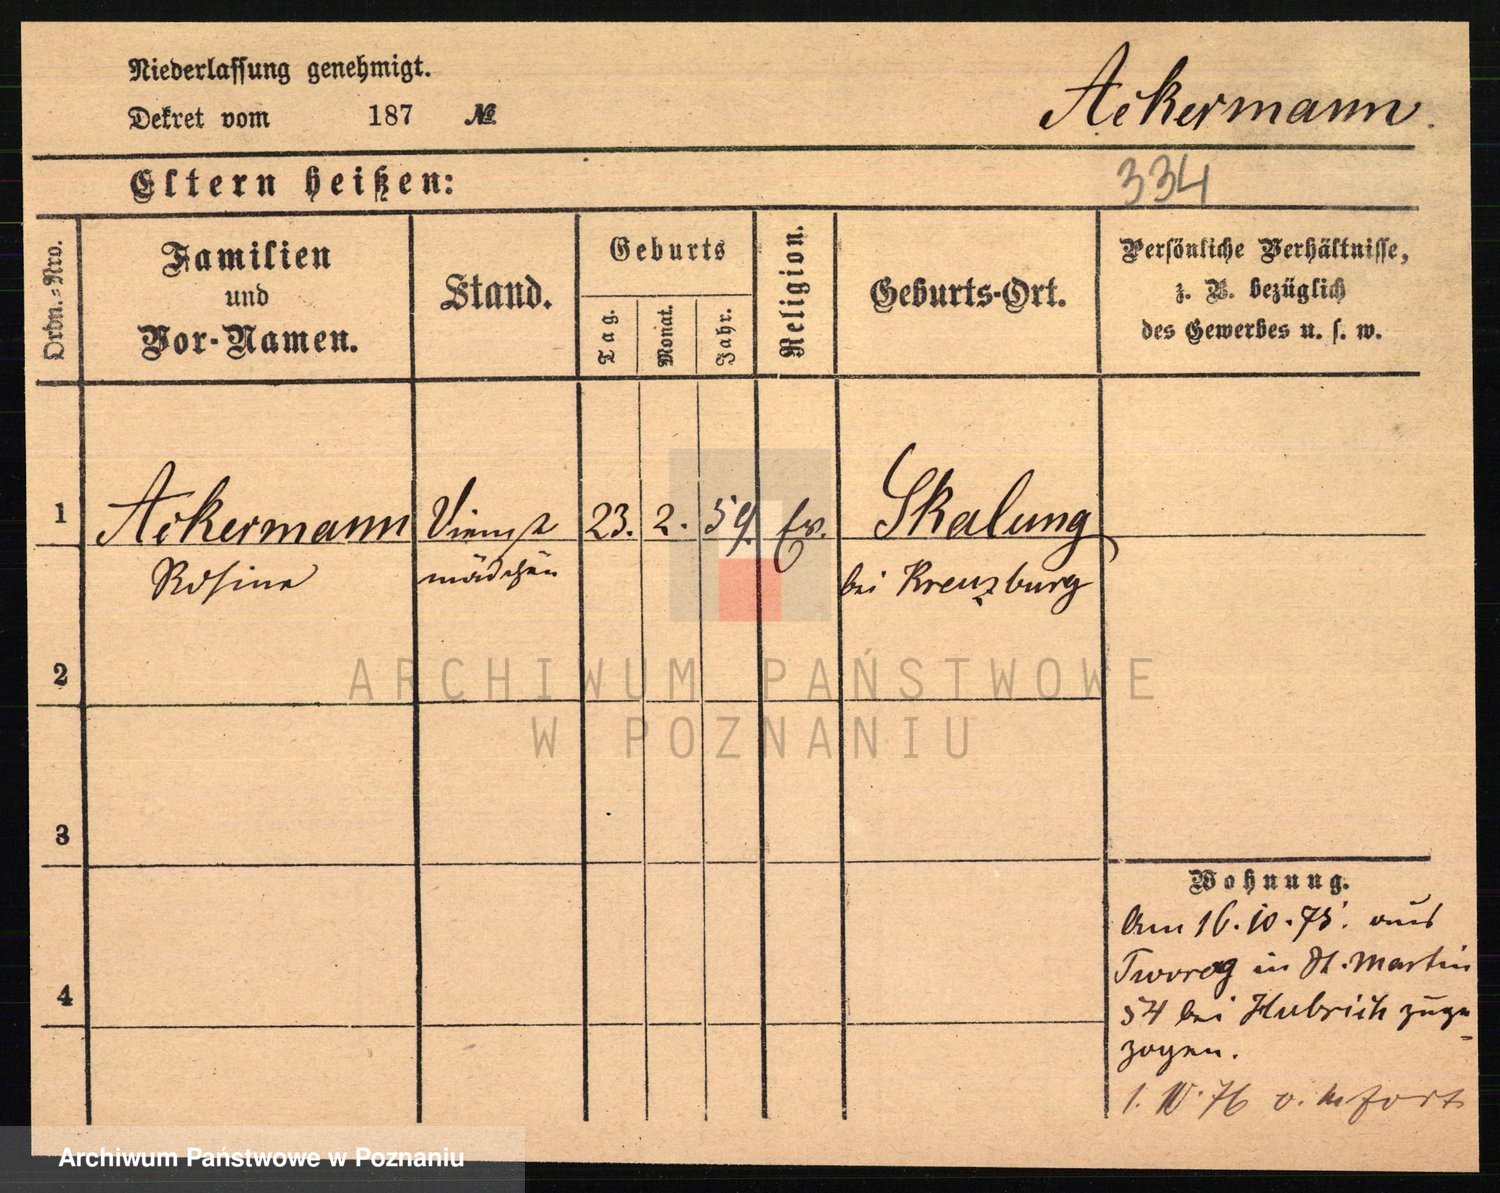 Niederlassung genehmigt.
Dekret vom 187 №
Ackermann.
Eltern heißen:
334
Ordn.-Nro.
Familien
und
Vor-Namen.
Stand.
Geburts
Tag.
Monat.
Jahr.
Religion.
Geburts-Ort.
Persönliche Verhältnisse,
z. B. bezüglich
des Gewerbes u. s. w.
1 Ackermann Dienst 23. 2. 59. Ev. Skalung
Rosina mädchen bei Kreuzburg
2
ARCHIWUM PAŃSTWOWE
W POZNANIU
3
4
Wohnung.
Am 16.10.75. aus
Tworog in St. Martin
54 bei Hubrich zuge-
zogen.
1. 76 fort
Archiwum Państwowe w Poznaniu